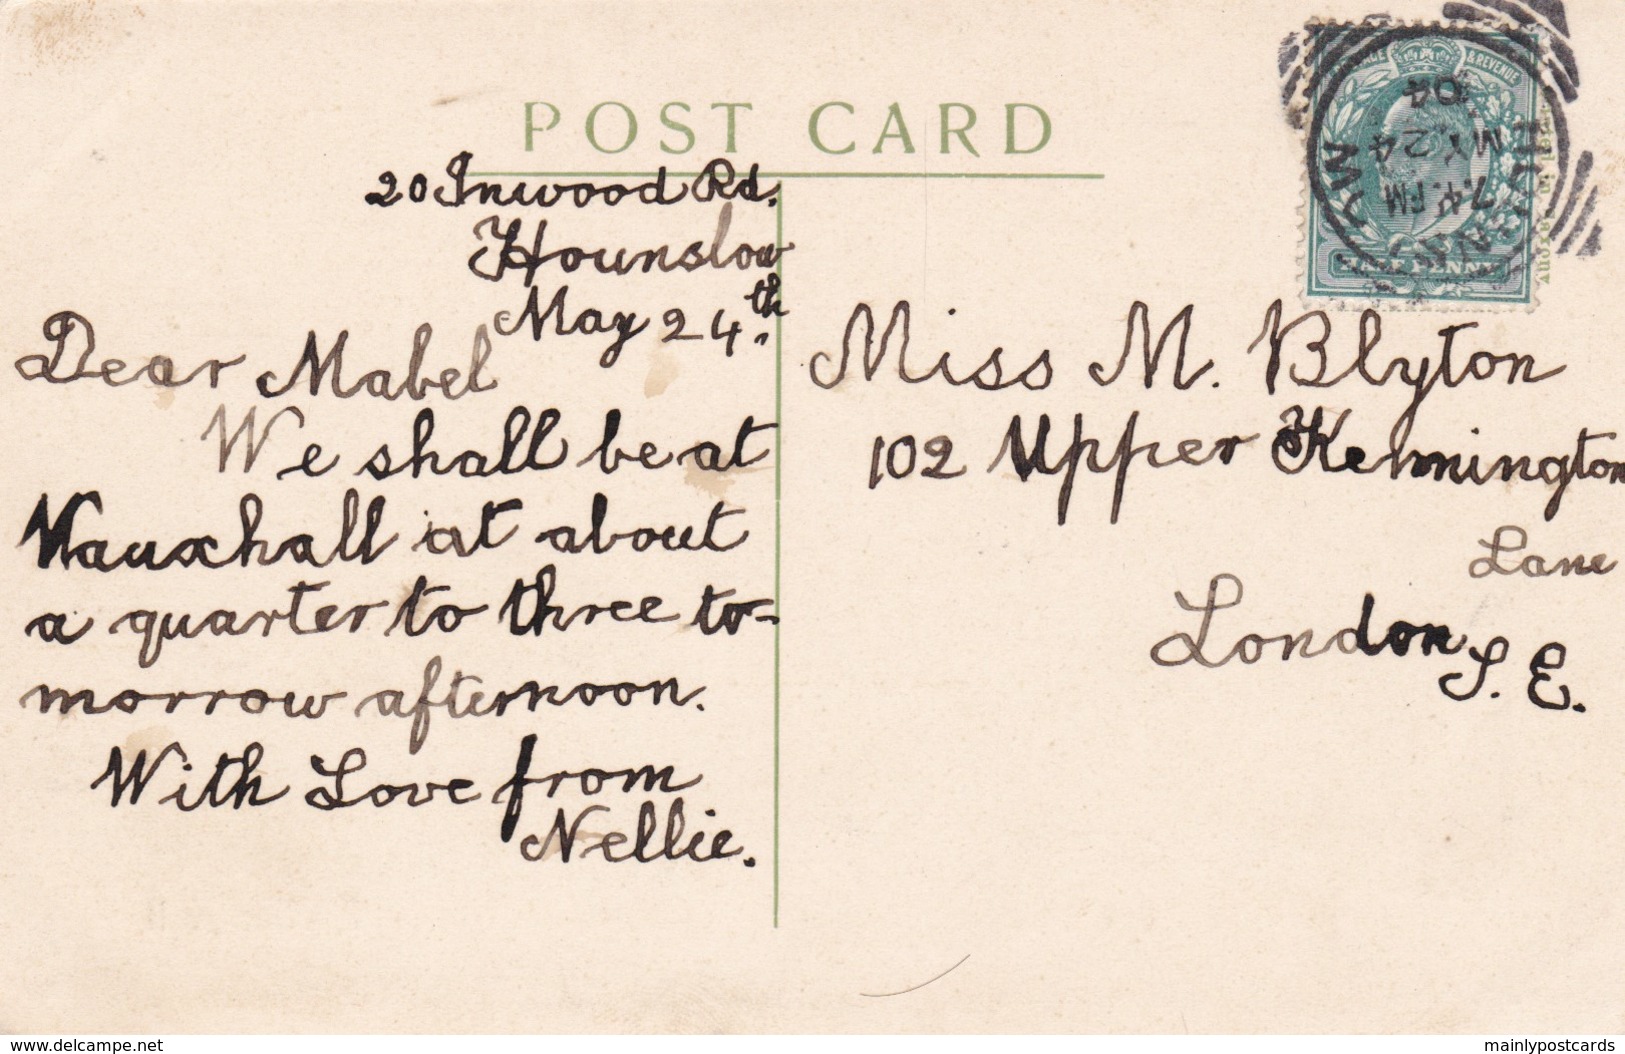 POST CARD
20 Inwood Rd.
Hounslow
May 24th.
Dear Mabel
We shall be at
Vauxhall at about
a quarter to three to-
morrow afternoon.
With Love from
Nellie.
Miss M. Blyton
102 Upper Kennington
Lane
London, S. E.
& REVENUE
HALF PENNY
7.4. PM
MY 24
04
www.delcampe.net
mainlypostcards